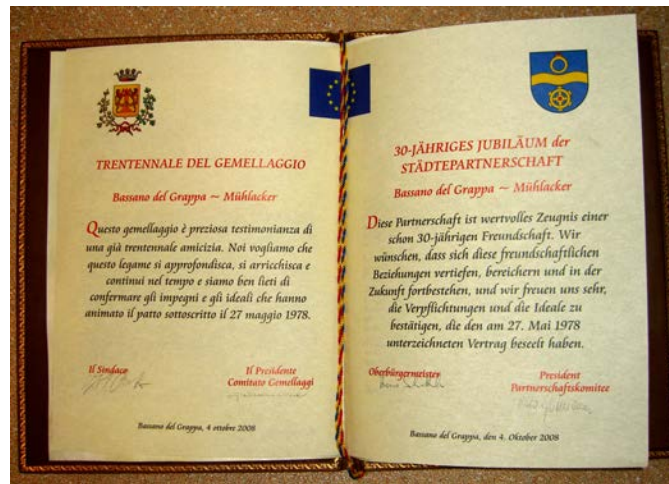 TRENTENNALE DEL GEMELLAGGIO
Bassano del Grappa ~ Mühlacker
Questo gemellaggio è preziosa testimonianza di
una già trentennale amicizia. Noi vogliamo che
questo legame si approfondisca, si arricchisca e
continui nel tempo e siamo ben lieti di
confermare gli impegni e gli ideali che hanno
animato il patto sottoscritto il 27 maggio 1978.
Il Sindaco
Il Presidente
Comitato Gemellaggi
Bassano del Grappa, 4 ottobre 2008
30-JÄHRIGES JUBILÄUM der
STÄDTEPARTNERSCHAFT
Bassano del Grappa ~ Mühlacker
Diese Partnerschaft ist wertvolles Zeugnis einer
schon 30-jährigen Freundschaft. Wir
wünschen, dass sich diese freundschaftlichen
Beziehungen vertiefen, bereichern und in der
Zukunft fortbestehen, und wir freuen uns sehr,
die Verpflichtungen und die Ideale zu
bestätigen, die den am 27. Mai 1978
unterzeichneten Vertrag beseelt haben.
Oberbürgermeister
President
Partnerschaftskomitee
Bassano del Grappa, den 4. Oktober 2008